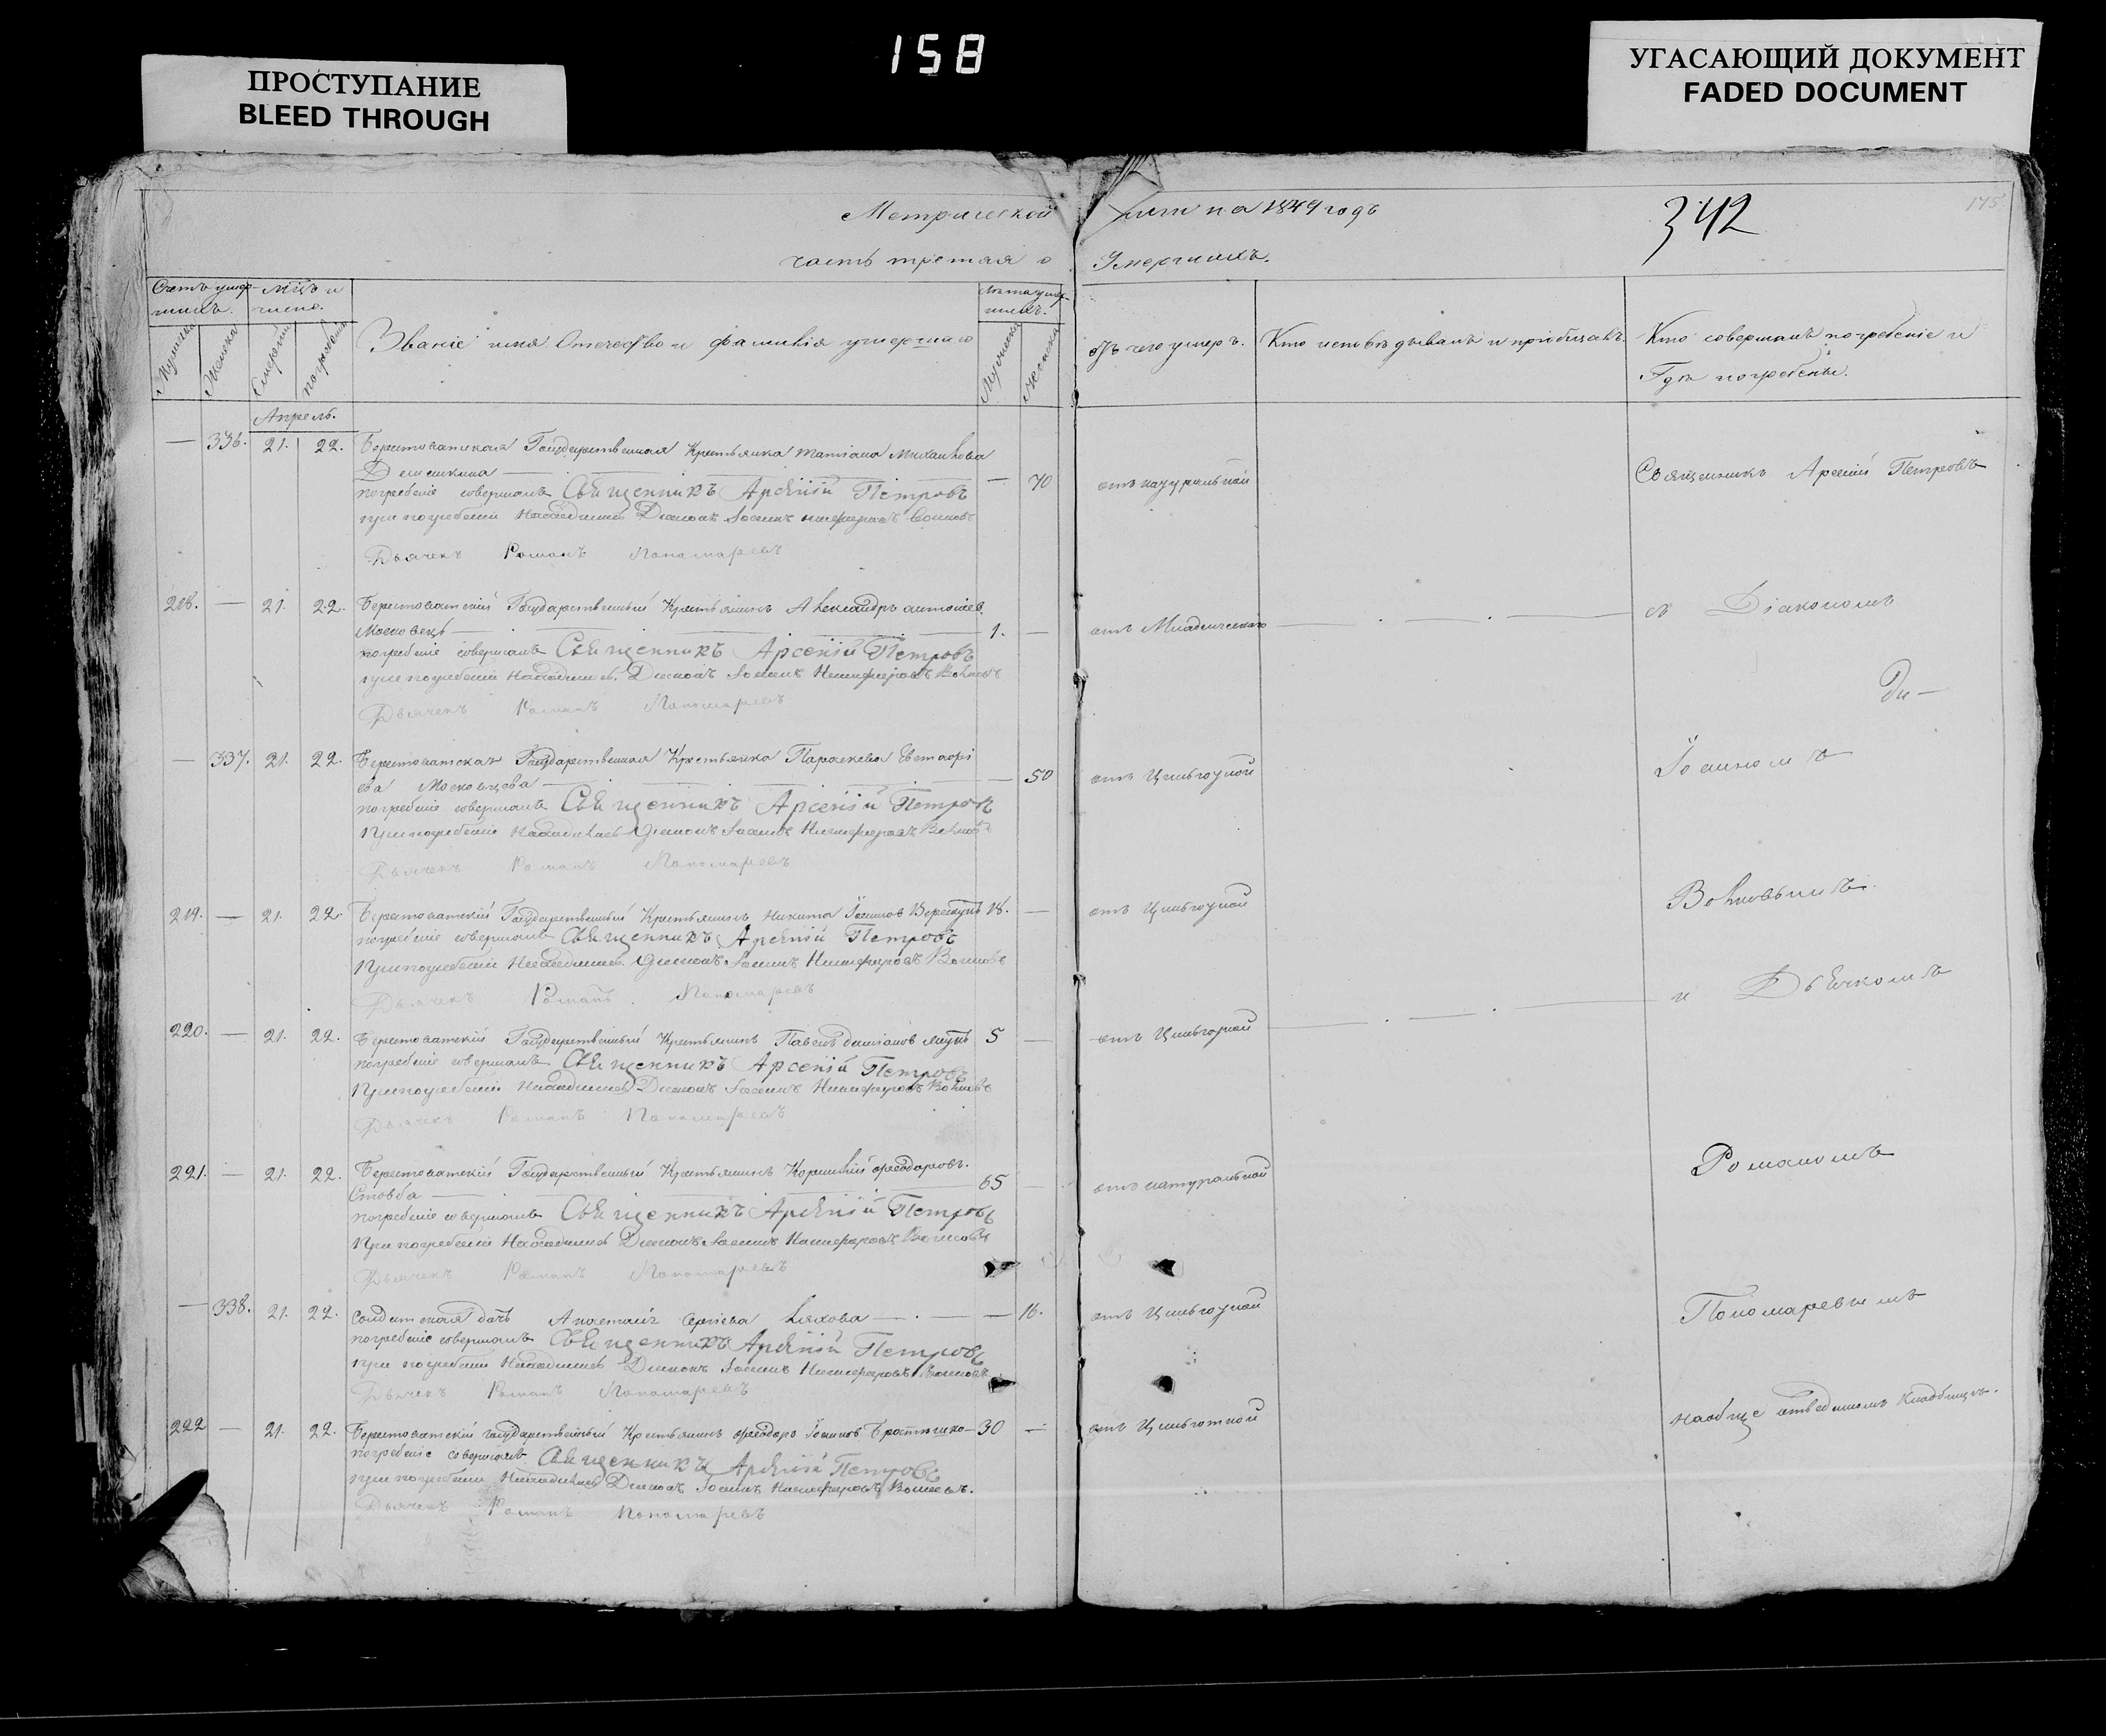 158
ПРОСТУПАНИЕ
BLEED THROUGH
УГАСАЮЩИЙ ДОКУМЕНТ
FADED DOCUMENT
Метрической
часть третая о
на 1849 годъ
Умершихъ.
342
175
Счетъ умер-
шихъ.
Мцъ и
число.
Званіе имя Отчество и фамилія умершаго
Лѣта умер-
шихъ.
Мужеска
Женска
Смерти
погребенія
Мужеска
Женска
Отъ чего умеръ.
Кто исповѣдывалъ и пріобщалъ.
Кто совершалъ погребеніе и
Гдѣ погребены.
Апрель.
— 336. 21. 22. Берестоватская Государственная Крестьянка Татіана Михайлова
— 70 отъ натуральной
погребеніе совершалъ Священникъ Арсеній Петровъ
при погребеніи находились Діаконъ Іоаннъ Никифоровъ
Дьячекъ Романъ Пономаревъ
Священникъ Арсеній Петровъ
218. — 21. 22. Берестоватскій Государственный Крестьянинъ Александръ
Московецъ — 1. — отъ Младенческаго
погребеніе совершалъ Священникъ Арсеній Петровъ
при погребеніи находились Діаконъ Іоаннъ Никифоровъ
Дьячекъ Романъ Пономаревъ
съ Діакономъ
— 337. 21. 22. Берестоватская Государственная Крестьянка Параскева Евстафі
ева Московцева — 50 отъ Цынготной
погребеніе совершалъ Священникъ Арсеній Петровъ
При погребеніи находились Діаконъ Іоаннъ Никифоровъ
Дьячекъ Романъ Пономаревъ
Іоанномъ
219. — 21. 22. Берестоватскій Государственный Крестьянинъ Никита Іоанновъ 18. — отъ Цынготной
погребеніе совершалъ Священникъ Арсеній Петровъ
При погребеніи находились Діаконъ Іоаннъ Никифоровъ
Дьячекъ Романъ Пономаревъ
и Дьячкомъ
220. — 21. 22. Берестоватскій Государственный Крестьянинъ Павелъ Даміановъ 5 — отъ Цынготной
погребеніе совершалъ Священникъ Арсеній Петровъ
При погребеніи находились Діаконъ Іоаннъ Никифоровъ
Дьячекъ Романъ Пономаревъ
Романомъ
221. — 21. 22. Берестоватскій Государственный Крестьянинъ Корнилій Феодоровъ.
Стовба — 65 — отъ натуральной
погребеніе совершалъ Священникъ Арсеній Петровъ
При погребеніи находились Діаконъ Іоаннъ Никифоровъ
Дьячекъ Романъ Пономаревъ
— 338. 21. 22. Солдатская дочь Сергіева Ляхова — 18. отъ Цынготной
погребеніе совершалъ Священникъ Арсеній Петровъ
при погребеніи находились Діаконъ Іоаннъ Никифоровъ
Дьячекъ Романъ Пономаревъ
Пономаревымъ
222 — 21. 22. Берестоватскій государственный Крестьянинъ Феодоръ Іоанновъ 30 — отъ Цынготной
погребеніе совершалъ Священникъ Арсеній Петровъ
при погребеніи находились Діаконъ Іоаннъ Никифоровъ
Дьячекъ Романъ Пономаревъ
на обще отведенномъ Кладбищѣ.